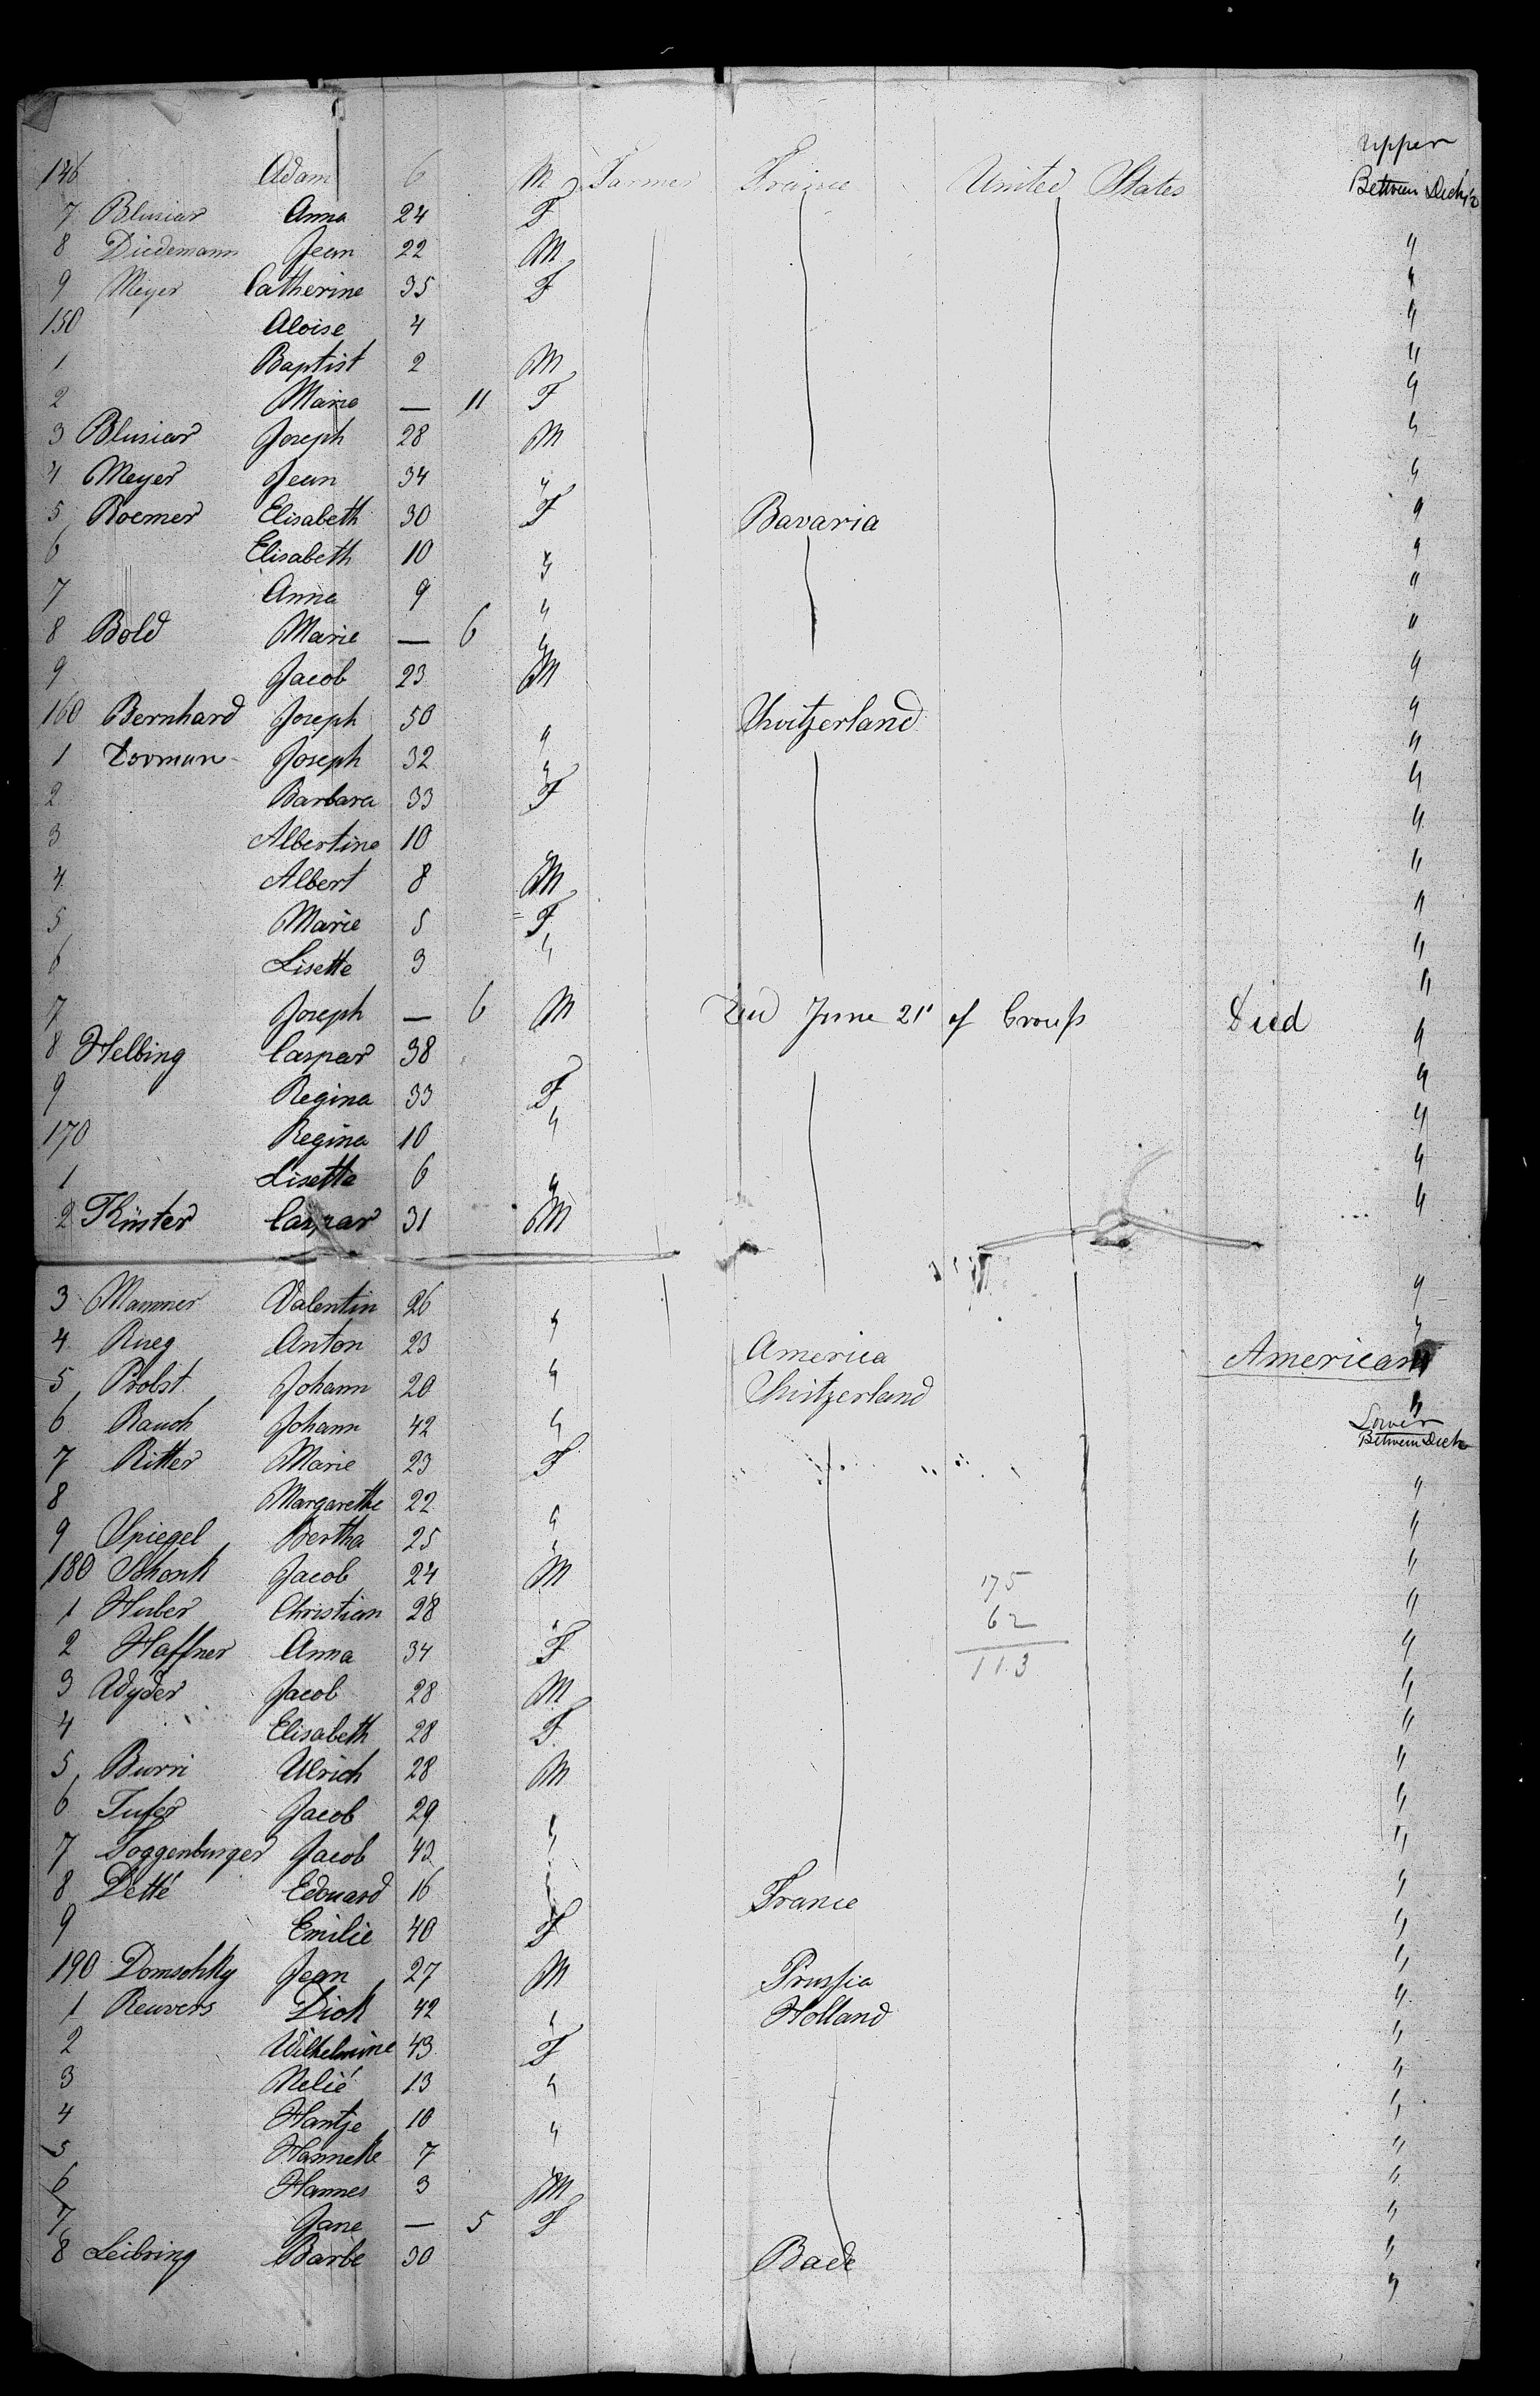 Upper
146 Adam 6 M Farmer France United States Between Decks
7 Blusiar Anna 24 F
8 Diedemann Jean 22 M "
9 Meyer Catherine 35 F "
150 Aloise 4 "
1 Baptist 2 M "
2 Marie — 11 F "
3 Blusiar Joseph 28 M "
4 Meyer Jean 34 " "
5 Roemer Elisabeth 30 F Bavaria "
6 Elisabeth 10 " "
7 Anna 9 " "
8 Bold Marie — 6 " "
9 Jacob 23 M "
160 Bernhard Joseph 50 " Switzerland "
1 Joseph 32 " "
2 Barbara 33 F "
3 Albertine 10 " "
4 Albert 8 M "
5 Marie 5 F "
6 Lisette 3 " "
7 Joseph — 6 M Died June 21st of Croup Died "
8 Helbing Caspar 38 "
9 Regina 33 F "
170 Regina 10 " "
1 Lisette 6 " "
2 Küster Caspar 31 M "
3 Mammer Valentin 26 " "
4 Rueg Anton 23 " America American "
5 Probst Johann 20 " Switzerland "
6 Rauch Johann 42 " Lower Between Deck
7 Ritter Marie 23 F
8 Margarethe 22 " "
9 Spiegel Bertha 25 " "
180 Schenk Jacob 24 M 175 "
1 Huber Christian 28 " 62 "
2 Haffner Anna 34 F 113 "
3 Wyder Jacob 28 M "
4 Elisabeth 28 F "
5 Burri Ulrich 28 M "
6 Jacob 29 " "
7 Toggenburger Jacob 43 " "
8 Detté Edouard 16 " France "
9 Emilie 40 F "
190 Domschky Jean 27 M Prussia "
1 Reuvers Dick 42 " Holland "
2 Wilhelmine 43 F "
3 Nelié 13 " "
4 Hantje 10 " "
5 Hanneke 7 " "
6 Hannes 3 M "
7 Jane — 5 F "
8 Leibring Barbe 30 Bade "